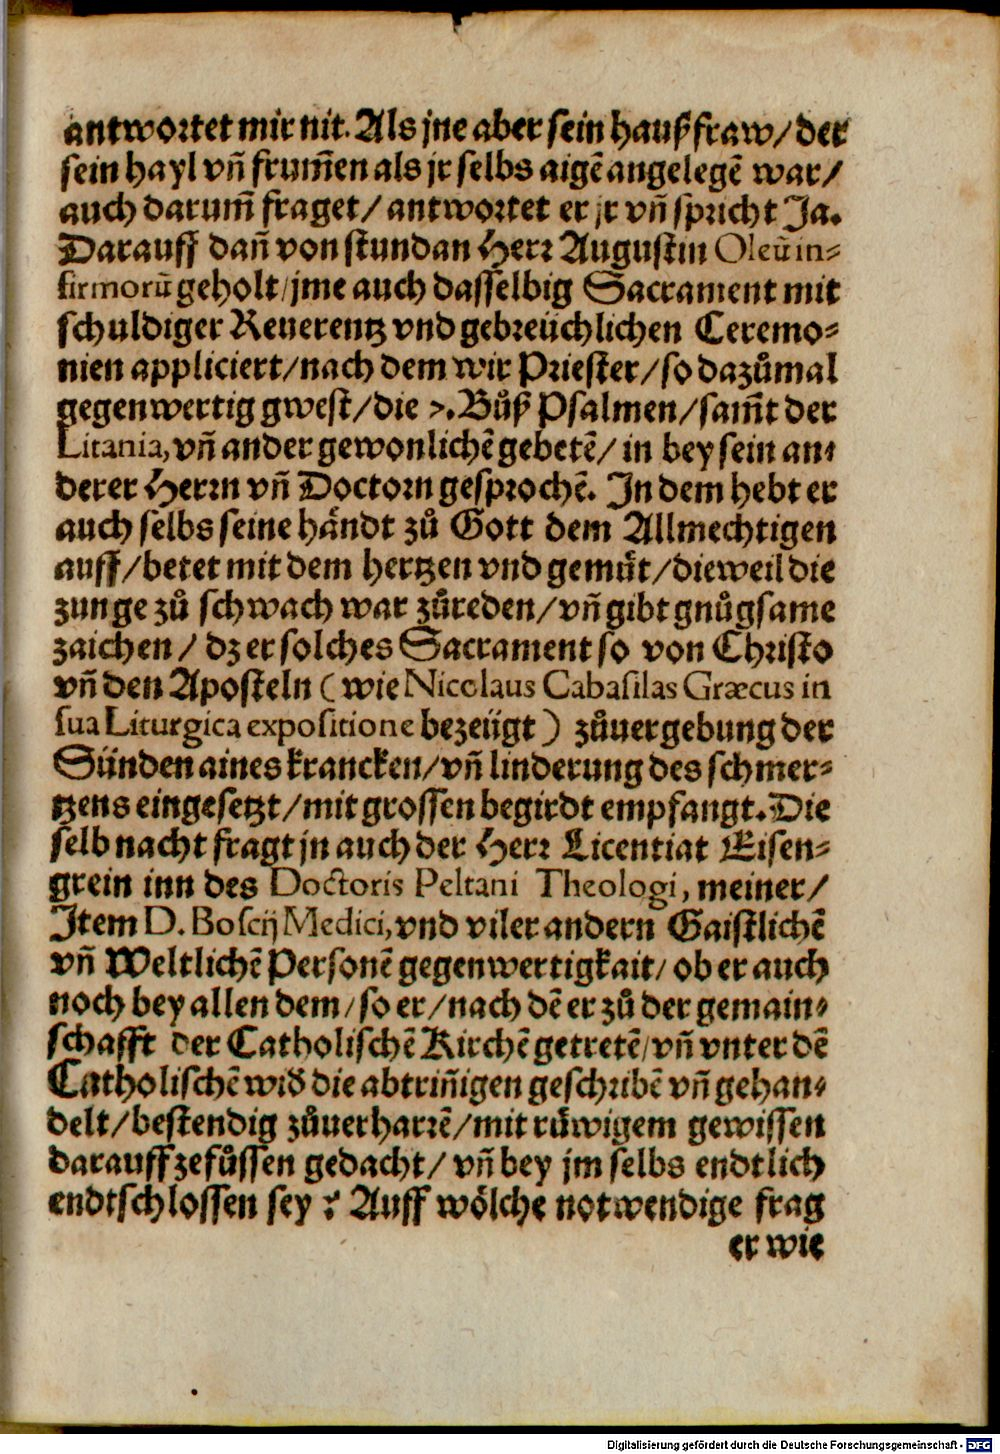 antwortet mir nit. Als jne aber sein haußfraw/ der
sein hayl vn̄ frum̄en als jr selbs aigē angelegē war/
auch darum̄ fraget/ antwortet er jr vn̄ spricht Ja.
Darauff dan̄ von stundan Herr Augustin Oleū in-
firmorū geholt/ jme auch dasselbig Sacrament mit
schuldiger Reuerentz vnd gebreüchlichen Ceremo-
nien appliciert/ nach dem wir Priester/ so dazůmal
gegenwertig gwest/ die 7. Bůß Psalmen/ sam̄t der
Litania, vn̄ ander gewonlichē gebetē/ in bey sein an-
derer Herrn vn̄ Doctorn gesprochē. In dem hebt er
auch selbs seine händt zů Gott dem Allmechtigen
auff/ betet mit dem hertzen vnd gemüt/ dieweil die
zunge zů schwach war zůreden/ vn̄ gibt gnůgsame
zaichen/ dz er solches Sacrament so von Christo
vn̄ den Aposteln ( wie Nicolaus Cabasilas Græcus in
sua Liturgica expositione bezeügt ) zůuergebung der
Sünden aines krancken/ vn̄ linderung des schmer-
tzens eingesetzt/ mit grossen begirdt empfangt. Die
selb nacht fragt jn auch der Herr Licentiat Eisen-
grein inn des Doctoris Peltani Theologi, meiner/
Item D. Boscij Medici, vnd viler andern Gaistlichē
vn̄ Weltlichē Personē gegenwertigkait/ ob er auch
noch bey allen dem/ so er/ nach dē er zů der gemain-
schafft der Catholischē Kirchē getretē/ vn̄ vnter dē
Catholischē wid̄ die abtrin̄igen geschribē vn̄ gehan-
delt/ bestendig zůuerharrē/ mit rüwigem gewissen
darauff zefůssen gedacht/ vn̄ bey jm selbs endtlich
endtschlossen sey ? Auff wölche notwendige frag
er wie
Digitalisierung gefördert durch die Deutsche Forschungsgemeinschaft - DFG